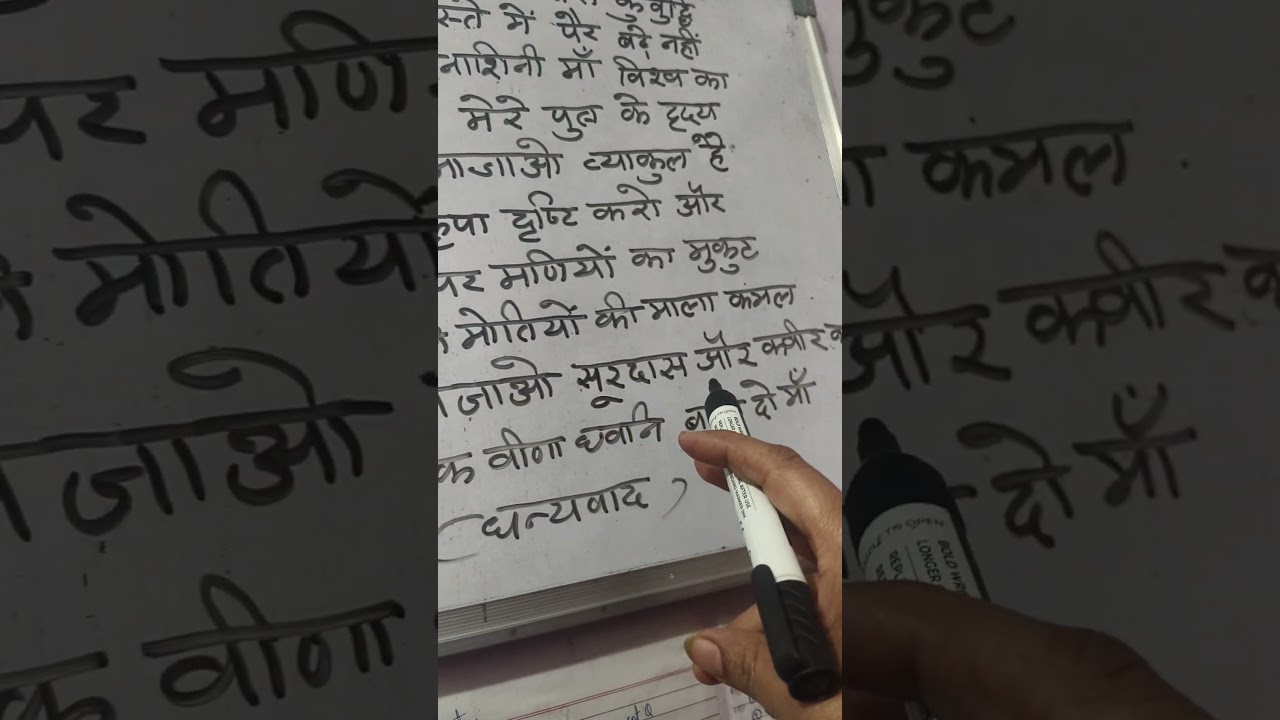 स्ते में पैर बढ़े नहीं
नाशिनी माँ विश्व का
मेरे पुत्र के हृदय
व्याकुल है
कृपा दृष्टि करो और
पर मणियों का मुकुट
मोतियों की माला कमल
जाओ सूरदास और कबीर
वीणा ध्वनि दो माँ
(धन्यवाद)